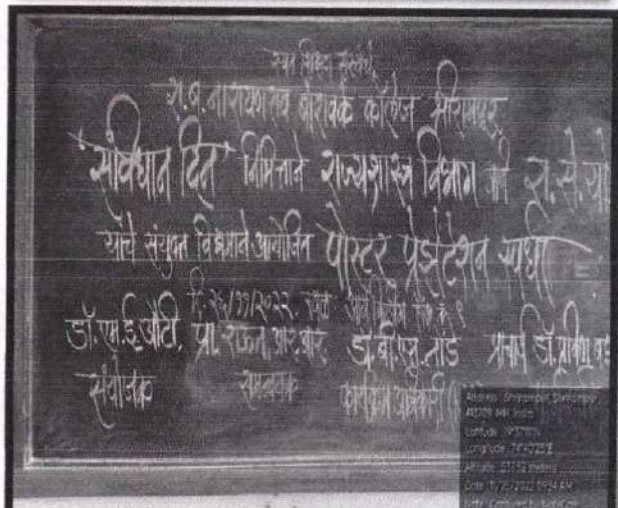 रयत शिक्षण संस्थेचे,
रा.ब. नारायणराव बोरावके कॉलेज श्रीरामपूर
"संविधान दिन" निमित्ताने राज्यशास्त्र विभाग रा.से.यो
यांचे संयुक्त विद्यमाने आयोजित पोस्टर प्रेझेंटेशन स्पर्धा
दि. २६/११/२०२२.
डॉ. एम.ई. औटी, प्रा. आर. डॉ. बी.एन. प्राचार्य डॉ. प्रविण
संयोजक समन्वयक कार्यक्रम अधिकारी
Address: Shrirampur, Shrirampur,
413709, MH, India
Latitude:
Longitude:
Altitude: meters
Date: 11/25/2022 AM